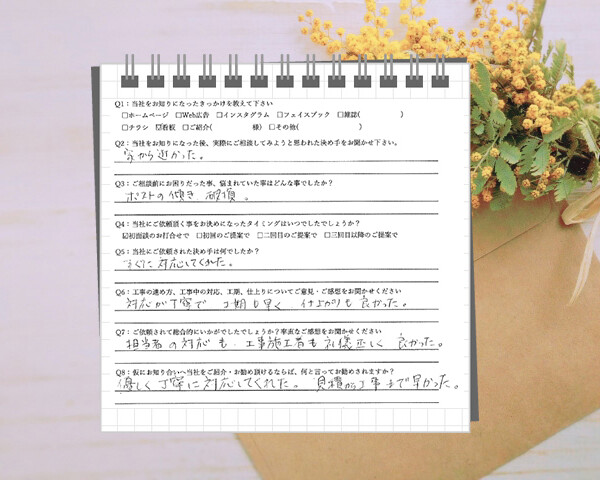 Q1：当社をお知りになったきっかけを教えて下さい
□ホームページ □Web広告 □インスタグラム □フェイスブック □雑誌( )
□チラシ ☑看板 □ご紹介( 様) □その他( )
Q2：当社をお知りになった後、実際にご相談してみようと思われた決め手をお聞かせ下さい。
家から近かった。
Q3：ご相談前にお困りだった事、悩まれていた事はどんな事でしたか？
ポストの傾き、破損。
Q4：当社にご依頼頂く事をお決めになったタイミングはいつでしたでしょうか？
☑初面談のお打合せで □初回のご提案で □二回目のご提案で □三回目以降のご提案で
Q5：当社にご依頼された決め手は何でしたか？
すぐに対応してくれた。
Q6：工事の進め方、工事中の対応、工期、仕上りについてご意見・ご感想をお聞かせください
対応が丁寧で 工期も早く 仕上がりも良かった。
Q7：ご依頼されて総合的にいかがでしたでしょうか？率直なご感想をお聞かせください
担当者の対応も、工事施工者も礼儀正しく 良かった。
Q8：仮にお知り合いへ当社をご紹介・お勧め頂けるならば、何と言ってお勧めされますか？
優しく丁寧に対応してくれた。見積から工事まで早かった。